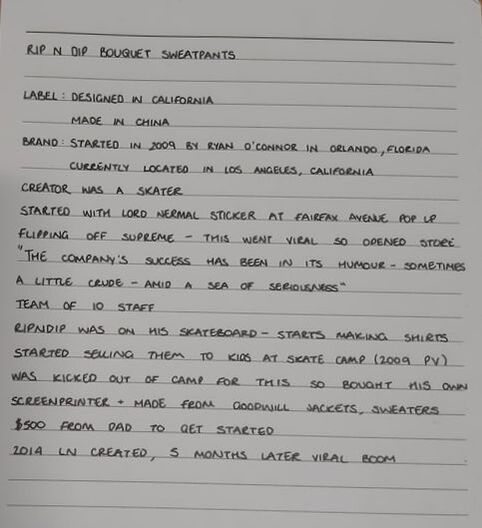 RIP N DIP BOUQUET SWEATPANTS
LABEL: DESIGNED IN CALIFORNIA
MADE IN CHINA
BRAND: STARTED IN 2009 BY RYAN O'CONNOR IN ORLANDO, FLORIDA
CURRENTLY LOCATED IN LOS ANGELES, CALIFORNIA
CREATOR WAS A SKATER
STARTED WITH LORD NERMAL STICKER AT FAIRFAX AVENUE POP UP
FLIPPING OFF SUPREME - THIS WENT VIRAL SO OPENED STORE
"THE COMPANY'S SUCCESS HAS BEEN IN ITS HUMOUR - SOMETIMES
A LITTLE CRUDE - AMID A SEA OF SERIOUSNESS"
TEAM OF 10 STAFF
RIPNDIP WAS ON HIS SKATEBOARD - STARTS MAKING SHIRTS
STARTED SELLING THEM TO KIDS AT SKATE CAMP (2009 PV)
WAS KICKED OUT OF CAMP FOR THIS SO BOUGHT HIS OWN
SCREENPRINTER + MADE FROM GOODWILL JACKETS, SWEATERS
$500 FROM DAD TO GET STARTED
2014 LN CREATED, 5 MONTHS LATER VIRAL BOOM